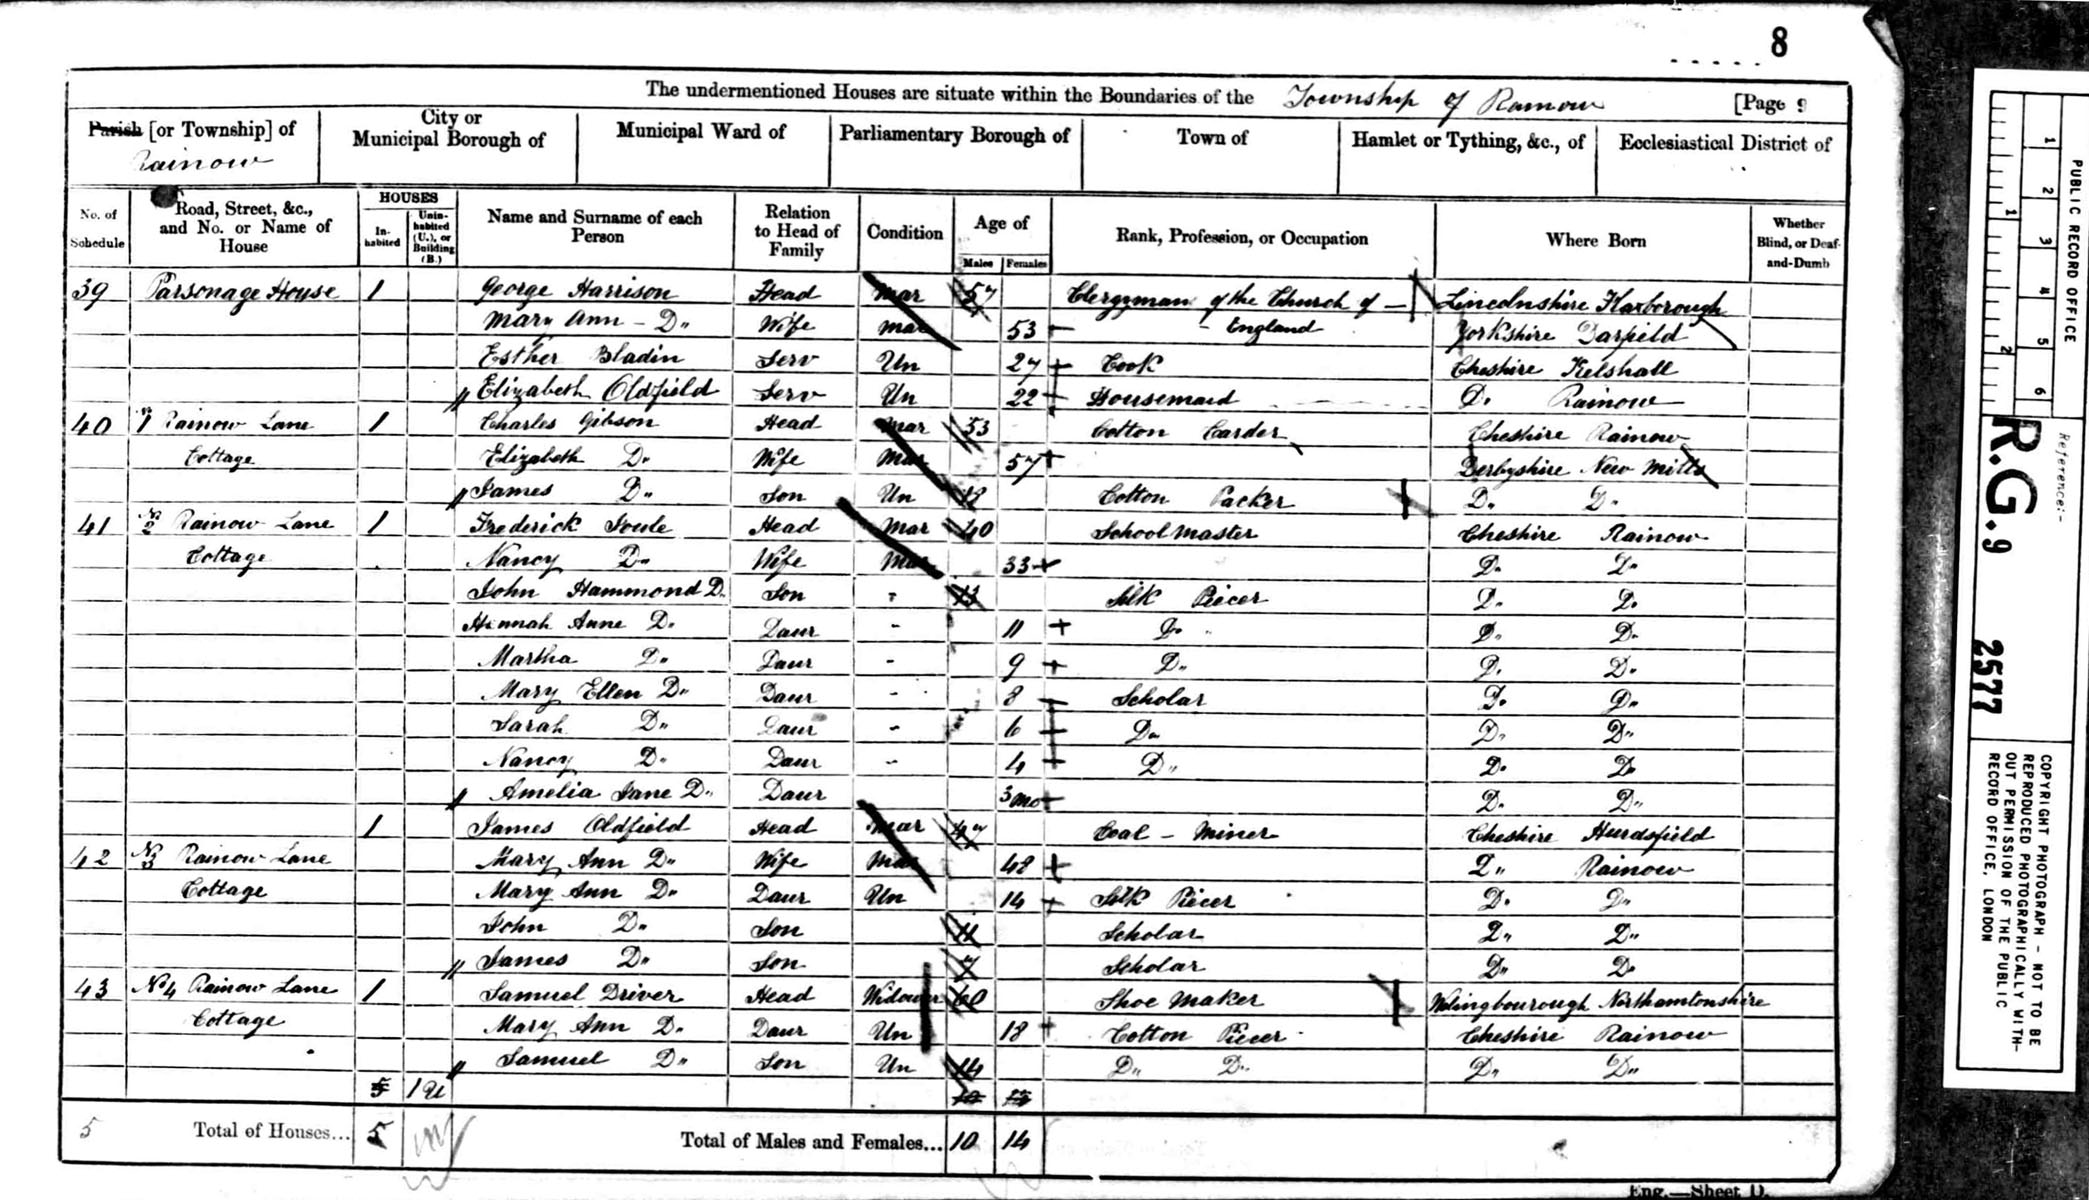 8
The undermentioned Houses are situate within the Boundaries of the Township of Rainow [Page 9
Parish [or Township] of Rainow
City or Municipal Borough of
Municipal Ward of
Parliamentary Borough of
Town of
Hamlet or Tything, &c., of
Ecclesiastical District of
No. of Schedule
Road, Street, &c., and No. or Name of House
HOUSES
In-habited
Unin-habited (U.), or Building (B.)
Name and Surname of each Person
Relation to Head of Family
Condition
Age of
Males Females
Rank, Profession, or Occupation
Where Born
Whether Blind, or Deaf-and-Dumb
39 Parsonage House 1 George Harrison Head Mar 57 Clergyman of the Church of — Lincolnshire Harborough
Mary Ann - Do Wife Mar 53 - England Yorkshire Darfield
Esther Bladin Serv Un 27 Cook Cheshire Kelshall
Elizabeth Oldfield Serv Un 22 Housemaid D. Rainow
40 No 1 Rainow Lane 1 Charles Gibson Head Mar 53 Cotton Carder Cheshire Rainow
Cottage Elizabeth Do Wife Mar 57 Derbyshire New Mills
James Do Son Un 18 Cotton Packer D. Do
41 No 2 Rainow Lane 1 Frederick Soule Head Mar 40 School Master Cheshire Rainow
Cottage Nancy Do Wife Mar 33 Do Do
John Hammond Do Son - 13 Silk Piecer Do Do
Hannah Anne Do Daur - 11 Do Do Do
Martha Do Daur - 9 Do Do Do
Mary Ellen Do Daur - 8 Scholar Do Do
Sarah Do Daur - 6 Do Do Do
Nancy Do Daur - 4 Do Do Do
Amelia Jane Do Daur 3 mo Do Do
1 James Oldfield Head Mar 47 Coal - Miner Cheshire Hurdsfield
42 No 3 Rainow Lane Mary Ann Do Wife Mar 48 Do Rainow
Cottage Mary Ann Do Daur Un 14 Silk Piecer Do Do
John Do Son 11 Scholar Do Do
James Do Son 7 Scholar Do Do
43 No 4 Rainow Lane 1 Samuel Driver Head Widower 60 Shoe Maker Welingbourough Northamtonshire
Cottage Mary Ann Do Daur Un 18 Cotton Piecer Cheshire Rainow
Samuel Do Son Un 14 Do Do Do Do
5 1 U
5 Total of Houses... 5 Total of Males and Females... 10 14
Eng.—Sheet D.
PUBLIC RECORD OFFICE
1 2 3 4 5 6
1 2
Reference:-
R.G. 9 2577
COPYRIGHT PHOTOGRAPH - NOT TO BE
REPRODUCED PHOTOGRAPHICALLY WITH-
OUT PERMISSION OF THE PUBLIC
RECORD OFFICE, LONDON